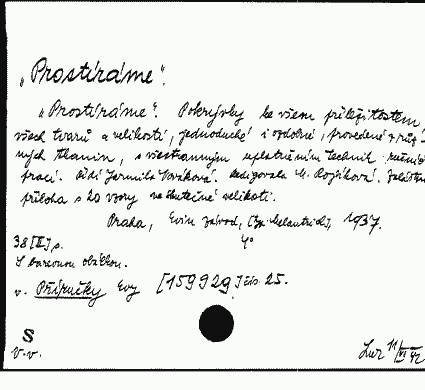 „Prostíráme".
„Prostíráme". Pokrývky ke všem příležitostem,
všech tvarů a velikostí, jednoduché i ozdobné, provedené z růz-
ných tkanin, s všestranným uplatněním technik ručních
prací. Řídí Jarmila Nováková. Redigovala M. Rojíková. Zvláštní
příloha s 20 vzory ve skutečné velikosti.
Praha, Evin závod, [tp. Melantrich], 1937.
38 [II] s. 4°
S barevnou obálkou.
v. Příručky Evy [159929] čís. 25.
S
v.v. 11/VI 42